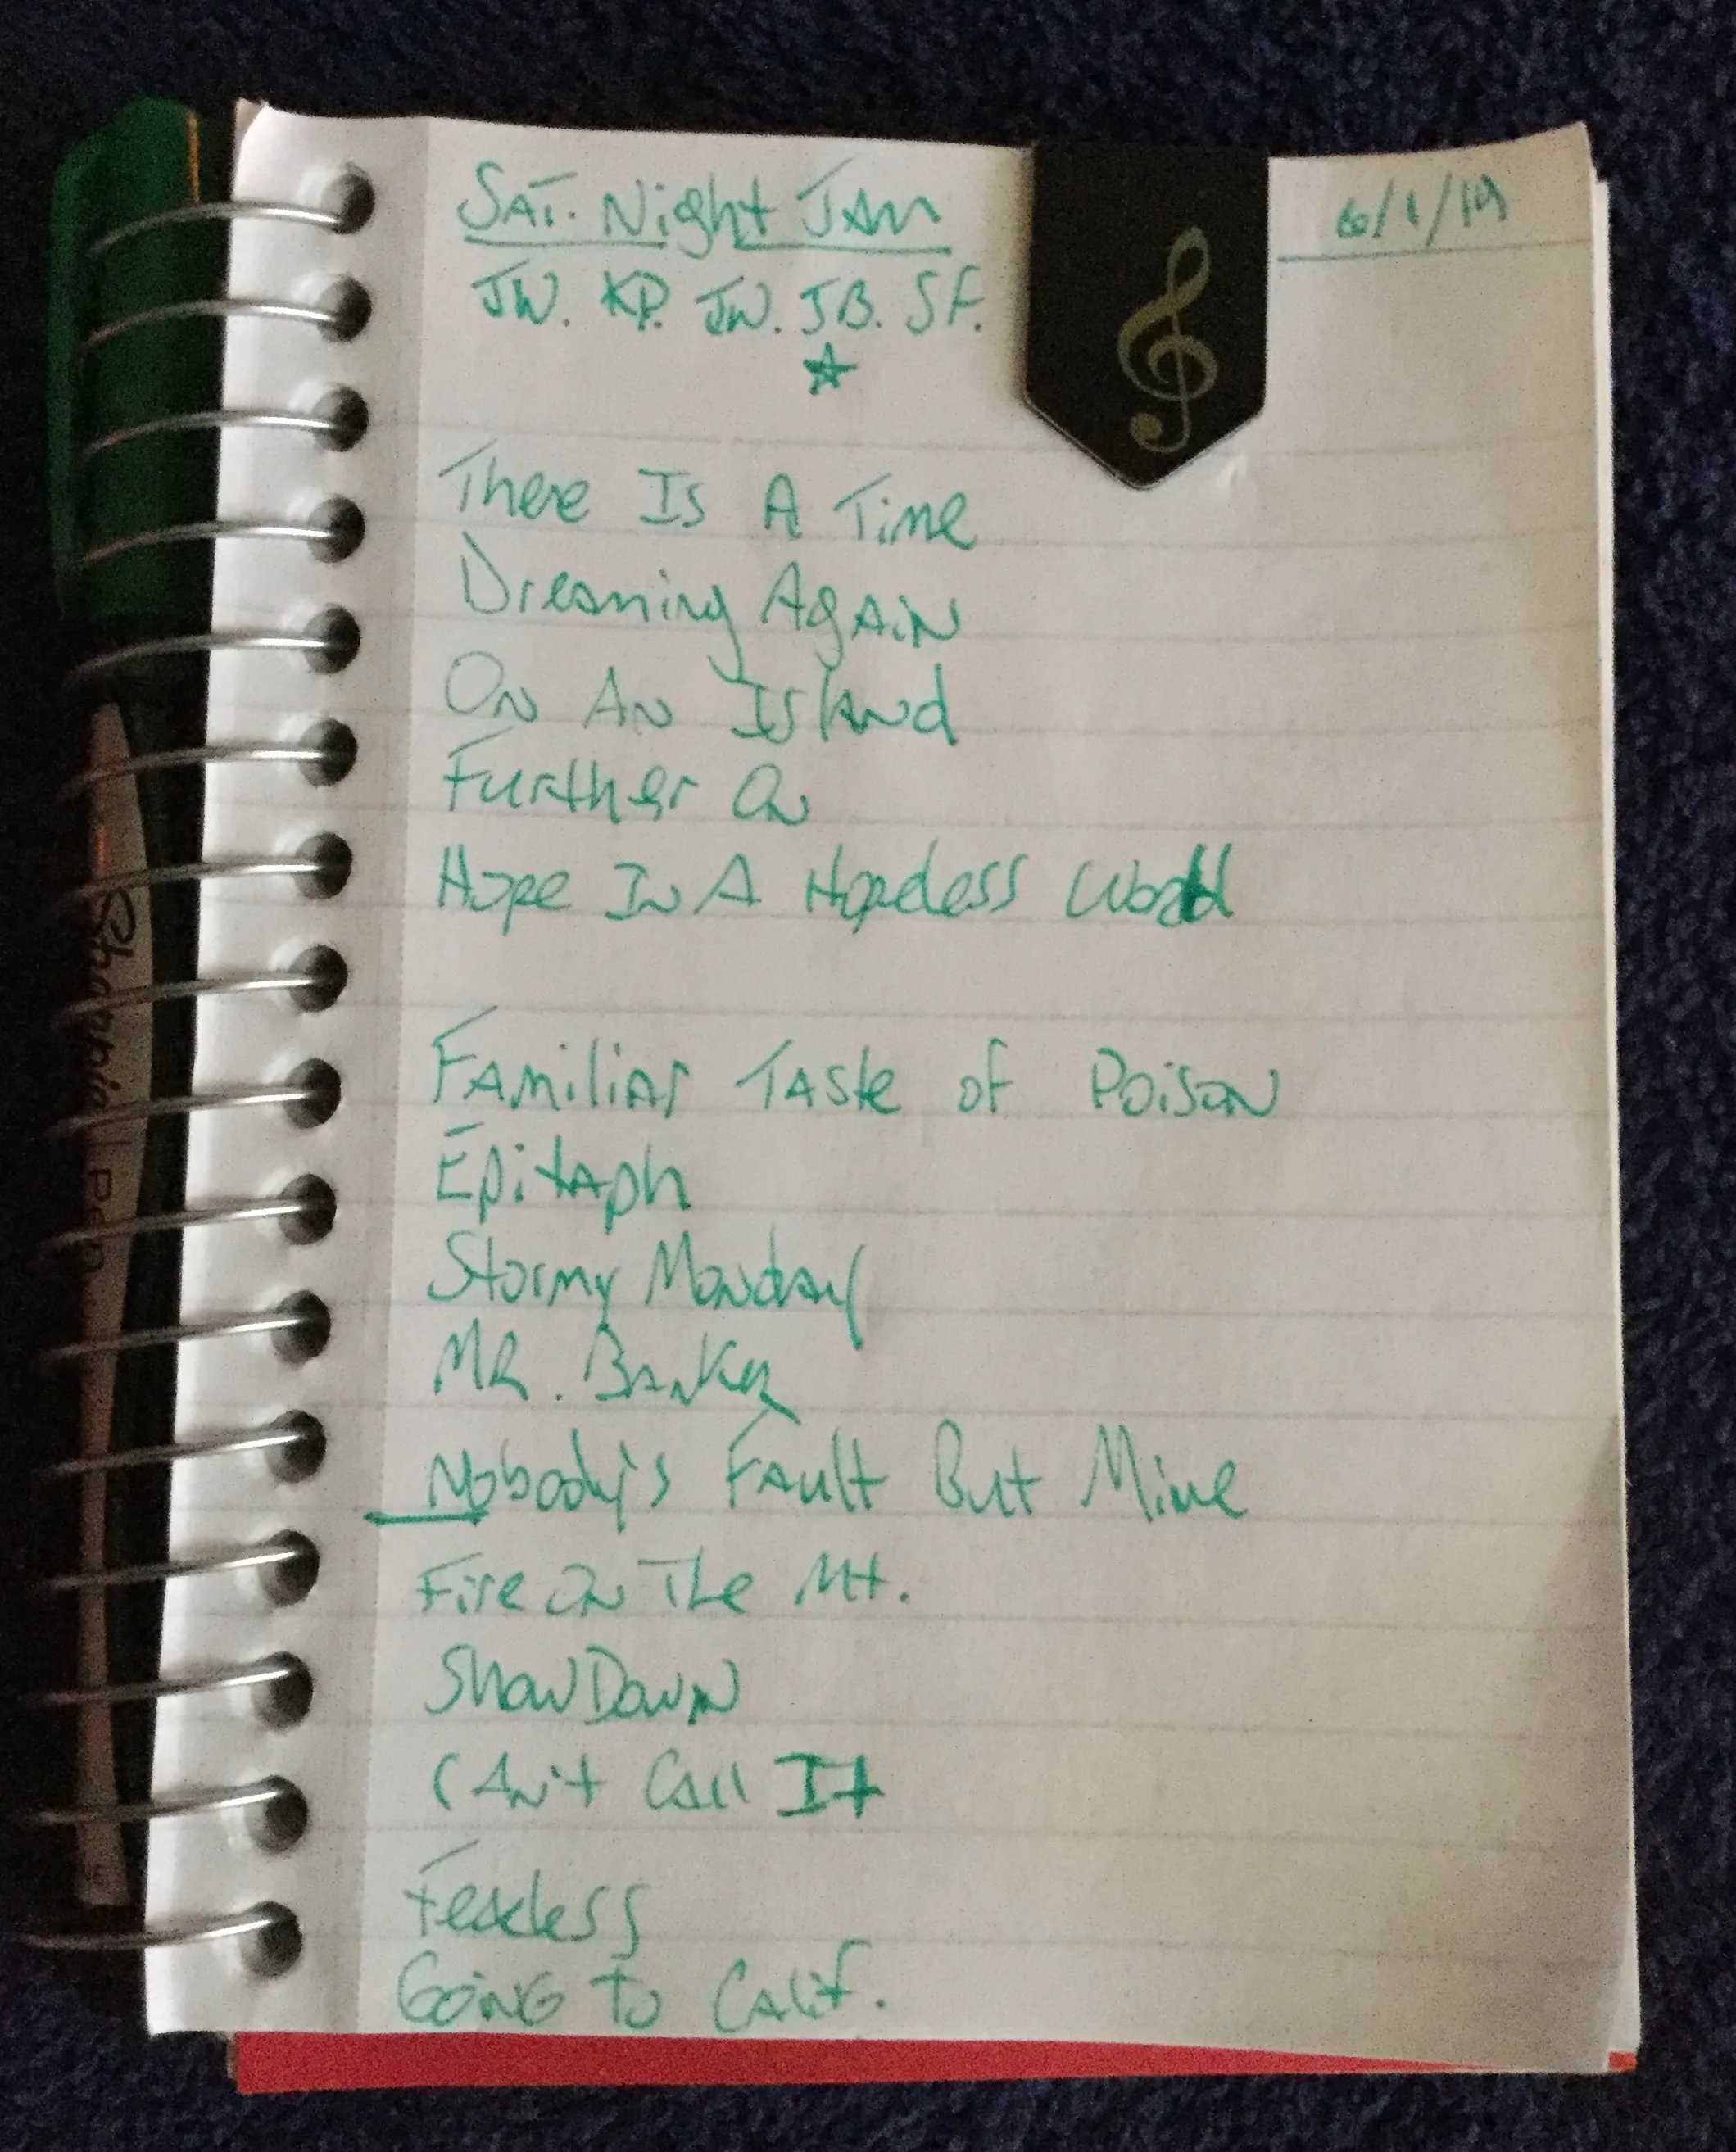 SAT. Night JAM 6/1/19
JW. KP. JW. JB. SF.
There Is A Time
Dreaming AgAiN
ON AN IslAnd
Further ON
Hope IN A Hopeless World
FAmiliAr TAste of PoisoN
EpitAph
Stormy MoNdAy
MR. BANKeR
Nobody's FAult But Mine
Fire ON The Mt.
ShowDowN
CAN't CAll It
Fearless
GoiNG To CAlif.
Sharpie Pen